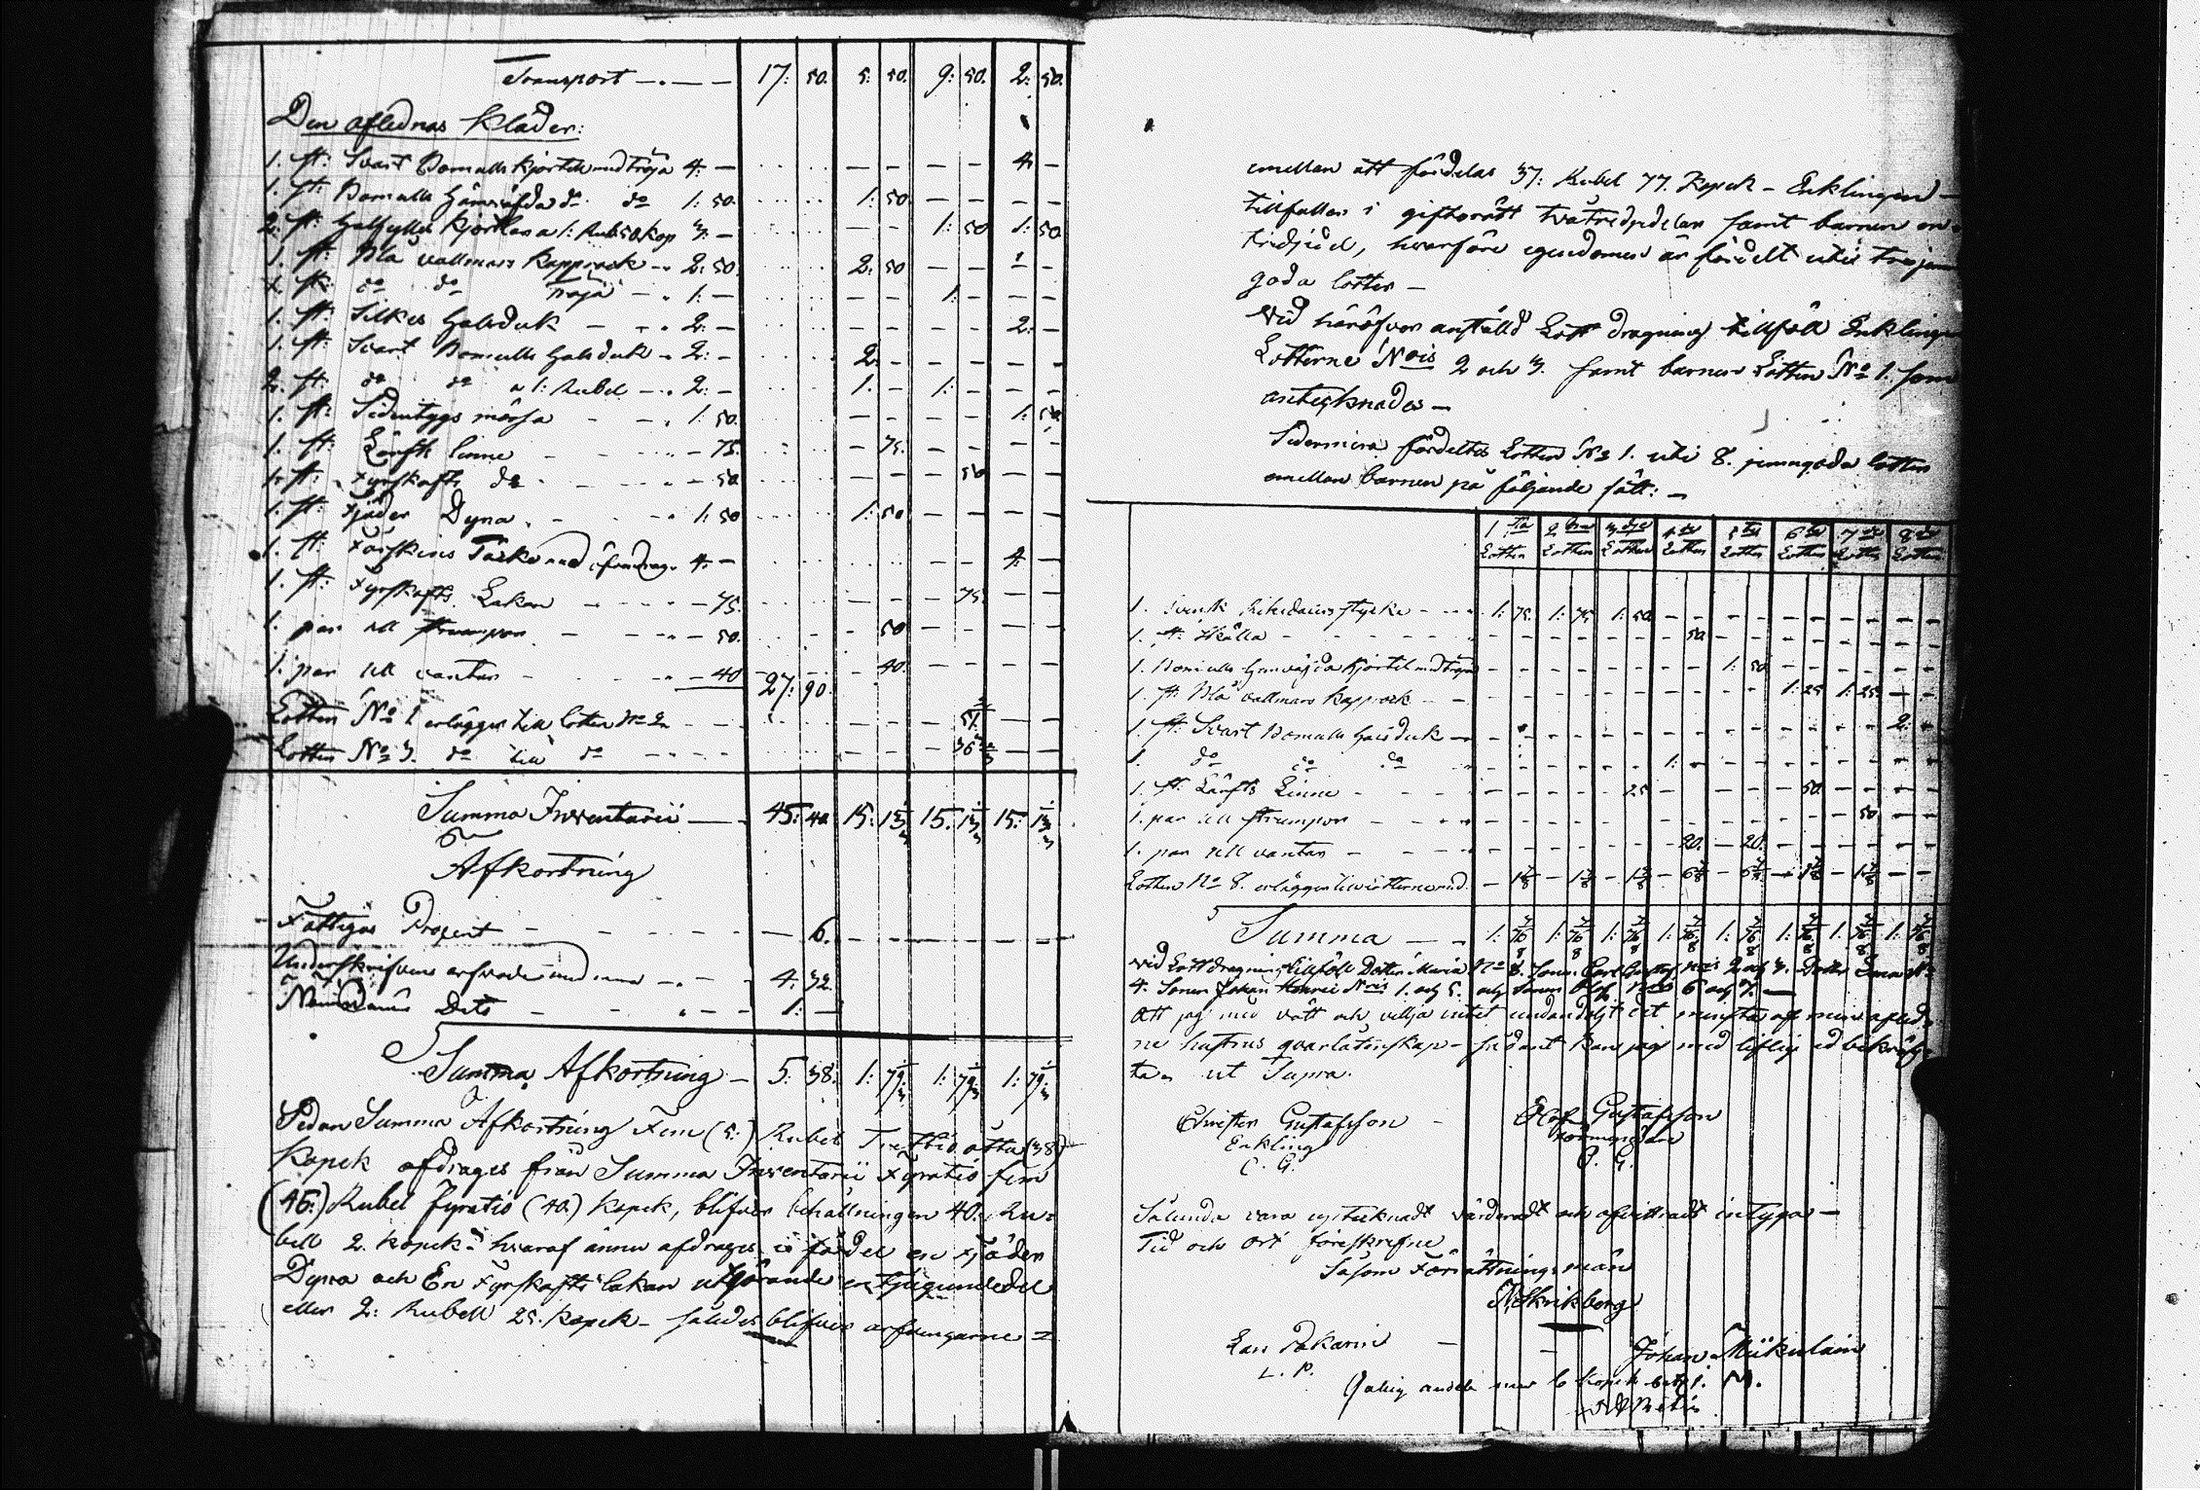 Transport 17: 50. 5: 50. 9: 50. 2: 50.
Den aflednas Kläder:
1. st: Svart Bomulls kjortel med tröja 4. — — — — — 4. —
1. st: Bomulls Hämväfda do do 1: 50. 1: 50. — — — —
2. st: Halfylles Kjortlar a 1: Rub 50 kop 3: — — — 1: 50 1: 50
1. st: Blå vallmars Kapprock 2: 50. 2: 50 — — — —
1. st: do do Tröja 1: — — — 1: — — —
1. st: Silkes Halsduk 2: — — — — — 2: —
1. st: Svart Bomulls Halsduk 2: — 2: — — — — —
2. st: do do a 1: Rubel 2: — 1: — 1: — — —
1. st: Sidentygs mössa 1: 50. — — — — 1: 50
1. st: Lärfts linne — 75. — 75. — — — —
1. st: Fyrskafts do — 50. — — — 50 — —
1. st: Fjäder Dyna 1: 50 1: 50 — — — —
1. st: Fårskins Täcke med 4: — — — 4: —
1. st: Fyrskafts Lakan — 75. — — — 75. — —
1. par ull strumpor — 50. — 50 — — — —
1. par ull vantar — 40 27: 90. — 40. — — — —
Lotten No 1 erlägger till lotten No 2
Lotten No 3. do till do
Summa Inventarii 45: 40. 15: 13 1/3 15. 13 1/3 15: 13 1/3
Afkortning
Fattigas Procent — 6.
Underskrifvens arfvode 4: 32.
Nämndemäns Dito 1: —
Summa Afkortning 5: 38: 1: 79 1/3 1: 79 1/3 1: 79 1/3
Sedan Summa Afkortning Fem (5:) Rubel Trettio åtta (38)
Kopek afdrages från Summa Inventarii Fyratio fem
(45:) Rubel fyratio (40.) kopek, blifver behållningen 40. Ru-
bell 2. kopek hvaraf ännu afdrages i fördel en Fjäder
Dyna och En Fyrskafts lakan utgörande en tjugundedel
eller 2: Rubell 25. kopek — således blifver arfvingarne
emellan att fördelas 37: Rubel 77. Kopek — Enklingen
tillfaller i giftorätt tvåtredjedelar samt barnen en
tredjedel, hvarföre egendomen är fördelt uti trejem
goda lotter —
Vid häröfver anställd Lott dragning tillföll Enklingen
Lotterne Nois 2 och 3. samt barnen Lotten No 1. som
antecknades —
Sedermera fördeltes Lotten No 1. uti 8. jemngoda lotter
emellan barnen på följande sätt: —
1 sta Lotten 2 dra Lotten 3 dje Lotten 4 de Lotten 5 te Lotten 6 te Lotten 7 de Lotten 8 de Lotten
1. Svensk Riksdalers stycke 1: 75. 1: 75 1: 50. — — — — —
1. st: Skälla — — — 50. — — — —
1. Bomulls Hemväfda Kjortel med tröja — — — — 1: 50. — — —
1. st: Blå vallmars Kapprock — — — — — 1: 25 1: 25. —
1. st: Svart Bomulls Halsduk — — — — — — — 2: —
1. do do do — — — 1: — — — — —
1. st: Lärfts Linne — — 25 — — 50. — —
1. par ull strumpor — — — — — — 50 —
1. par ull vantar — — — 20. — 20. — — —
Lotten No 8. erlägger till lotterne med
Summa 1: 76 7/8 1: 76 7/8 1: 76 7/8 1: 76 7/8 1: 76 7/8 1: 76 7/8 1: 76 7/8 1: 76 7/8
Vid Lottdragning tillföll Dotter Maria No 8. Sonen Carl Gustaf Nois 2 och 3. Dotter No
4. Sonen Johan Nois 1. och 5. och Sonen Olof Nois 6 och 7. —
Att jag med vett och vilja intet undandoljt det minsta af min afled-
ne hustrus qvarlåtenskap — sådant kan jag med liflig ed bekräf-
ta. ut Supra.
Christer Gustafsson
Enkling
C. G.
Olof Gustafsson
Förmyndare
O. G.
Sålunda vara upteknadt värderadt och afvittradt intygar —
Tid och Ort föreskrefne
Såsom Förrättningsman
Skrikberg
Lars
L. P.
Johan
J. M.